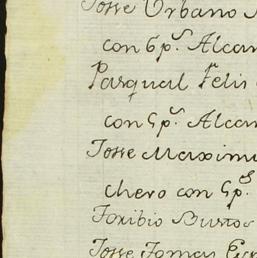 Josse Urbano
con 6 p.s Alcan
Pasqual Felis
con 5 p.s Alcan
Josse Maximi
chero con 5 p.s
Toribio Bustos
Josse Tomas